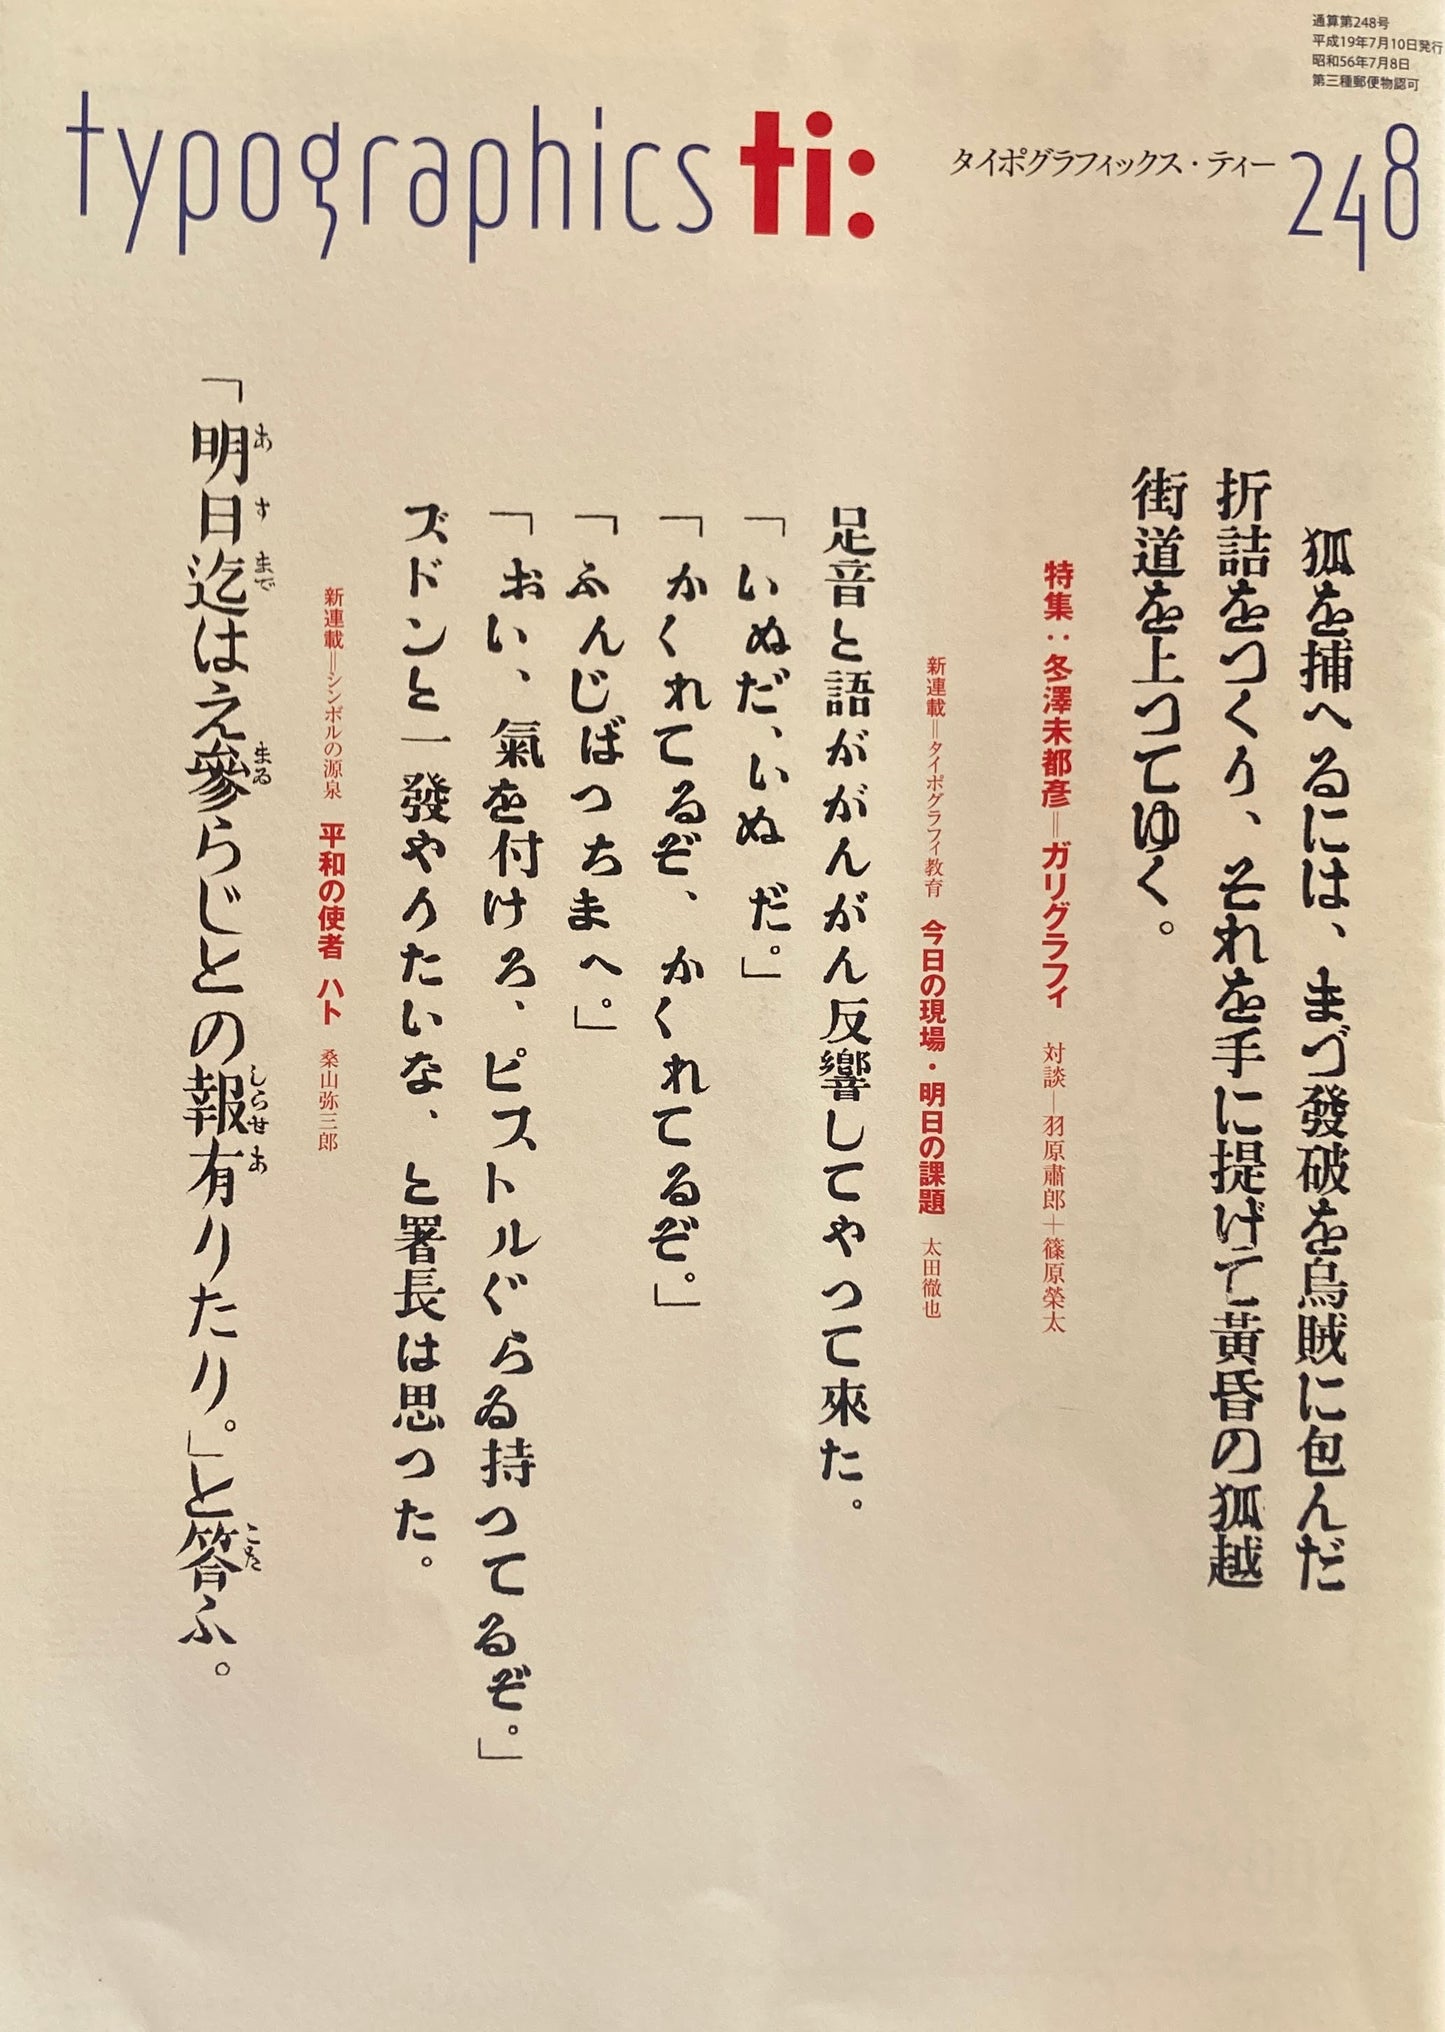 通算第248号
平成19年7月10日発行
昭和56年7月8日
第三種郵便物認可
typographics ti:
タイポグラフィックス・ティー 248
狐を捕へるには、まづ發破を烏賊に包んだ
折詰をつくり、それを手に提げて黃昏の狐越
街道を上つてゆく。
特集：冬澤未都彦＝ガリグラフィ 対談―羽原肅郎＋篠原榮太
新連載＝タイポグラフィ教育 今日の現場・明日の課題 太田徹也
足音と語ががんがん反響してやつて來た。
「いぬだ、いぬ だ。」
「かくれてるぞ、かくれてるぞ。」
「ふんじばつちまへ。」
「おい、氣を付けろ、ピストルぐらゐ持つてるぞ。」
ズドンと一發やりたいな、と署長は思つた。
新連載＝シンボルの源泉 平和の使者 ハト 桑山弥三郎
「明日迄はえ參らじとの報有りたり。」と答ふ。
あ す まで まゐ しらせ あ こた